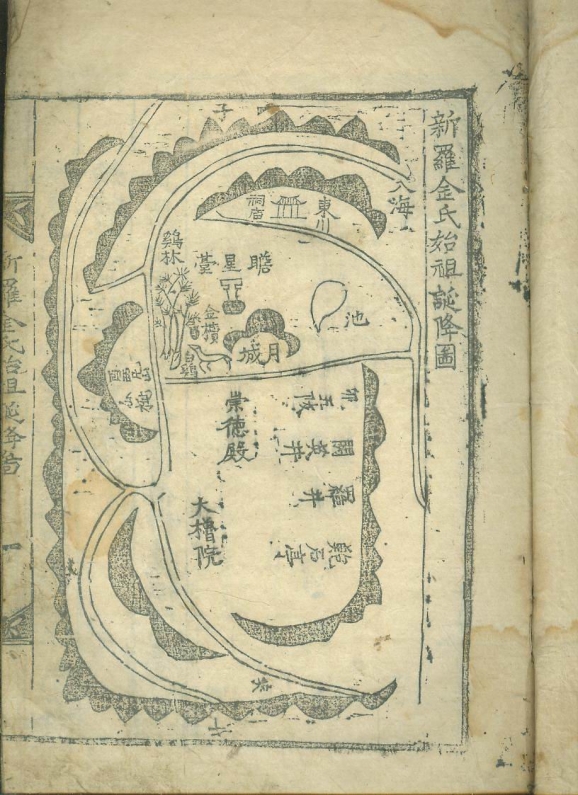 新羅金氏始祖誕降圖
入海
子
東川
祠宙
瞻星臺
鷄林
金樻
池
月城
白鷄
崇德殿
五陵
閼英井
羅井
鮑石亭
大櫓院
新羅金氏始祖誕降啚
一